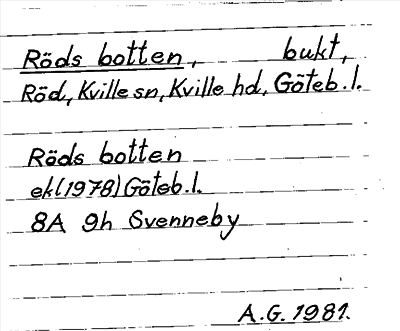 Röds botten, bukt,
Röd, Kville sn, Kville hd, Göteb. l.
Röds botten
ek(1978) Göteb. l.
8A 9h Svenneby
A.G. 1981.